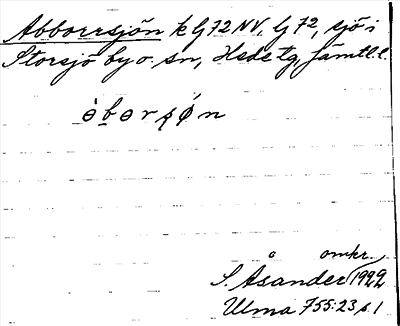 Abborrsjön k G72NV, G72, sjö i
Storsjö by o. sn, Hsdstg, Jämtl.l.
åbersøn
omkr.
S. Åsander 1922
Ulma 755:23 s. 1